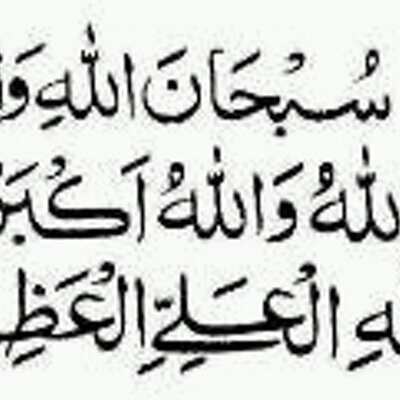 سُبْحَانَ اللهِ وَا
للهُ وَاللهُ اَكْبَرُ
هِ الْعَلِيِّ الْعَظِ